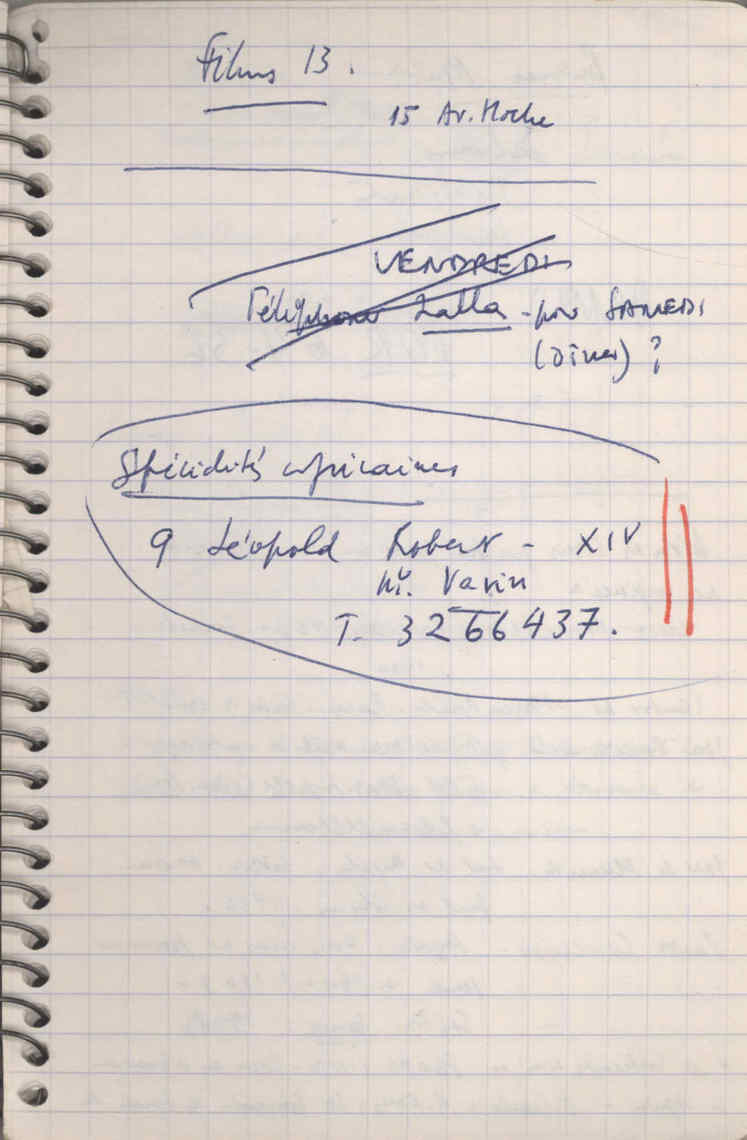 Films 13.
15 Av. Hoche
VENDREDI
Téléphoner Lalla - pour SAMEDI
(Dîner) ?
Spécialités africaines
9 Léopold Robert - XIV
M. Vavin
T. 3266437.